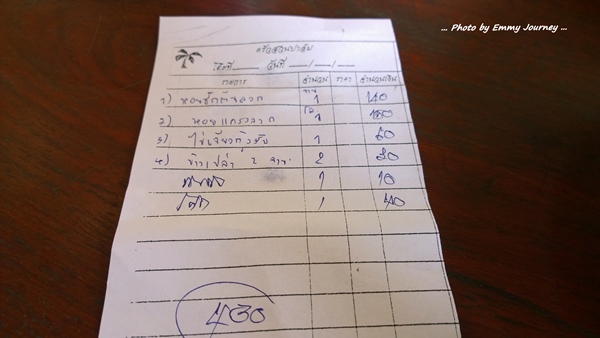 ... Photo by Emmy Journey ...
ครัวสวนปาล์ม
โต๊ะที่ วันที่ / /
รายการ จำนวน ราคา จำนวนเงิน
1) หอยชักตีนลวก 1 140
2) หอยแครงลวก 1 160
3) ไข่เจียวกุ้งสับ 1 60
4) ข้าวเปล่า 2 จาน 2 20
1 10
โค้ก 1 40
430